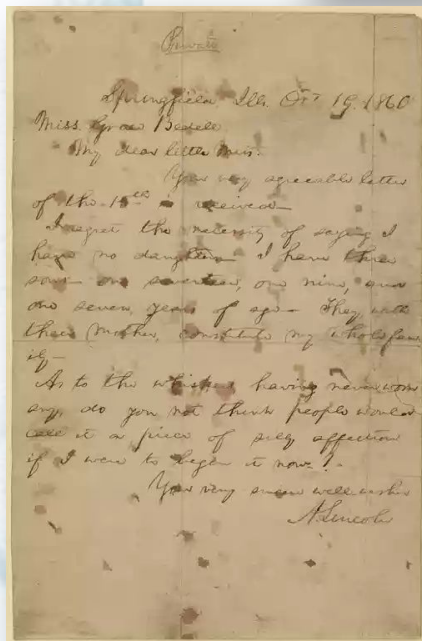 Private
Springfield, Ills. Oct 19. 1860
Miss. Grace Bedell
My dear little Miss.
Your very agreeable letter
of the 15th is received—
I regret the necessity of saying I
have no daughters— I have three
sons— one seventeen, one nine, and
one seven, years of age— They, with
their mother, constitute my whole fam-
ily—
As to the whiskers having never worn
any, do you not think people would
call it a piece of silly affection
if I were to begin it now?
Your very sincere well wisher
A. Lincoln